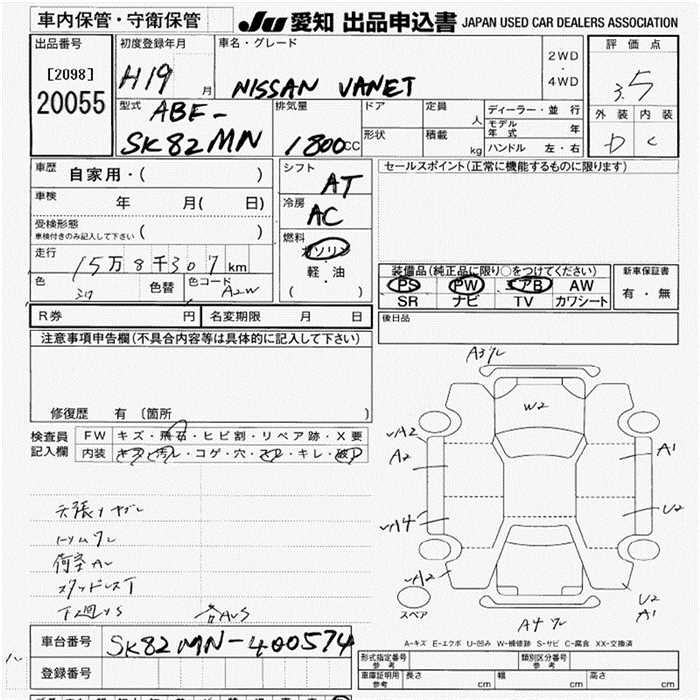 車内保管・守衛保管
JU 愛知 出品申込書 JAPAN USED CAR DEALERS ASSOCIATION
出品番号
[2098]
20055
初度登録年月
H19 月
車名・グレード
NISSAN VANET
2WD
・
4WD
評価点
3.5
外装 内装
D C
型式
ABF-
SK82MN
排気量
1800CC
ドア
定員
人
形状
積載
kg
ディーラー・並行
モデル年式 年
ハンドル 左・右
車歴 自家用・( )
車検 年 月( 日)
受検形態
車検付きのみ記入して下さい ( )
走行 15万8千307km
色 色替 色コード A2W
シフト
AT
冷房
AC
燃料
ガソリン
・
軽・油
( )
セールスポイント(正常に機能するものに限ります)
装備品(純正品に限り○をつけてください)
PS PW エアB AW
SR ナビ TV カワシート
新車保証書
有・無
R券 円 名変期限 月 日
後日品
注意事項申告欄(不具合内容等は具体的に記入して下さい)
修復歴 有 〔箇所 〕
検査員
記入欄
FW キズ・飛石・ヒビ割・リペア跡・X要
内装 キズ・汚レ・コゲ・穴・スレ・キレ・破レ
荷室AL
スタッドレスT
A3
W2
A2
A2
A1
A4
U2
A2
U2
A1
A4
スペア
A-キズ E-エクボ U-凹み W-補修跡 S-サビ C-腐食 XX-交換済
車台番号 SK82MN-400574
登録番号
形式指定番号
参考
類別区分番号
参考
車庫証明用
参考
長さ cm 幅 cm 高さ cm